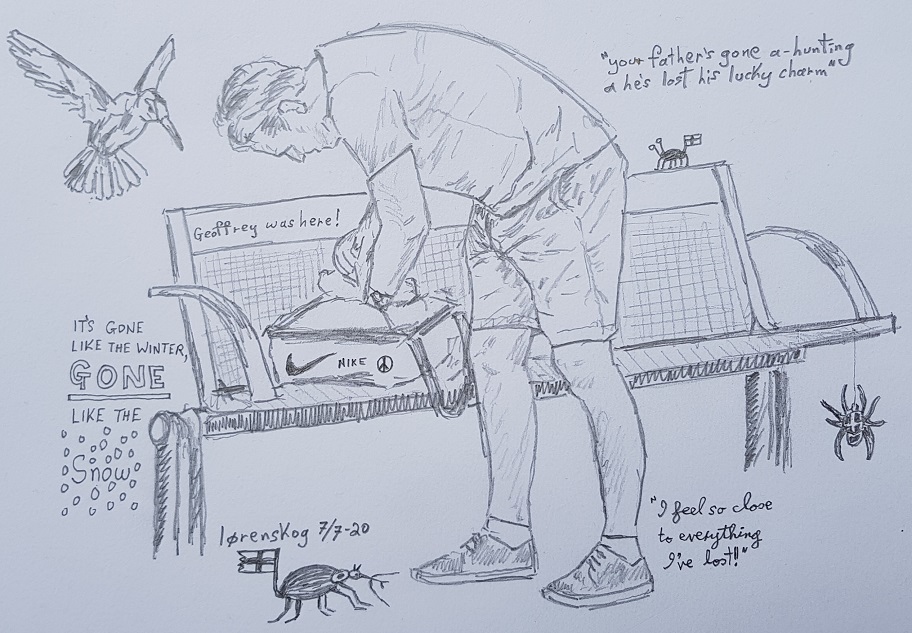 "your father's gone a-hunting
& he's lost his lucky charm"
Geoffrey was here!
IT'S GONE
LIKE THE WINTER,
GONE
LIKE THE
Snow
NIKE
lørenskog 7/7-20
"I feel so close
to everything
I've lost!!"